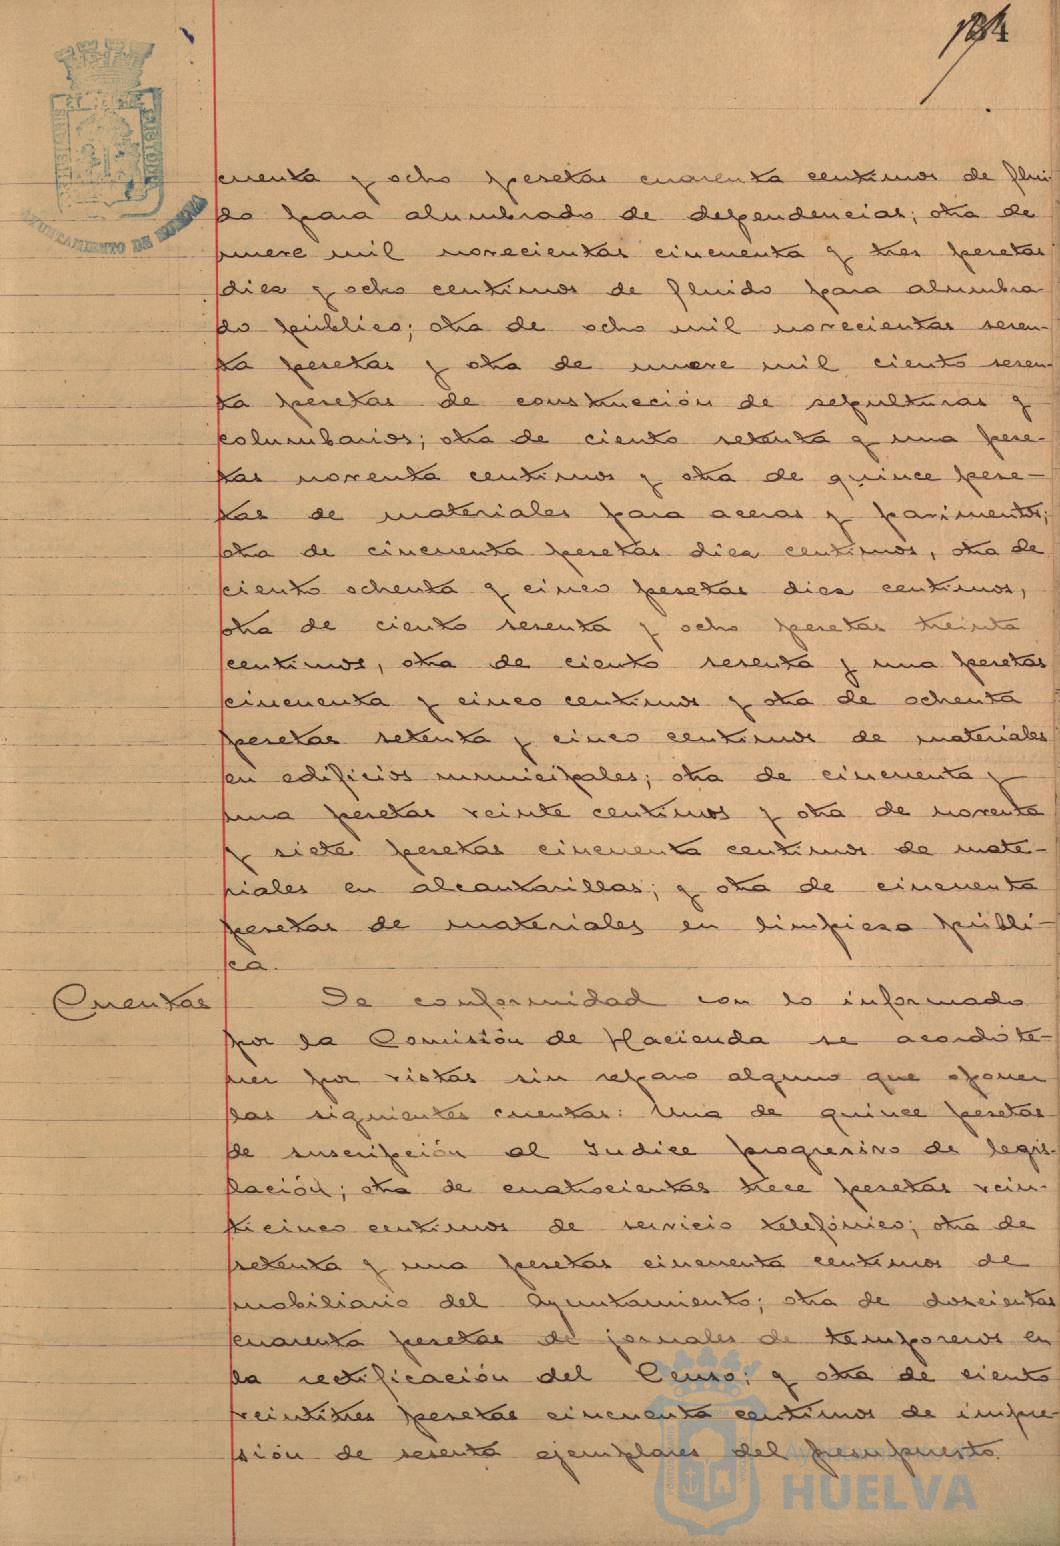 184
AYUNTAMIENTO DE HUELVA
cuenta y ocho pesetas cuarenta centimos de flui
do para alumbrado de dependencias; otra de
nueve mil novecientas cincuenta y tres pesetas
diez y ocho centimos de fluido para alumbra
do público; otra de ocho mil novecientas seten-
ta pesetas y otra de nueve mil ciento sesen-
ta pesetas de construcción de sepulturas y
columbarios; otra de ciento setenta y una pese-
tas noventa centimos y otra de quince pese-
tas de materiales para aceras y pavimentos;
otra de cincuenta pesetas diez centimos, otra de
ciento ochenta y cinco pesetas diez centimos,
otra de ciento sesenta y ocho pesetas treinta
centimos, otra de ciento sesenta y una pesetas
cincuenta y cinco centimos y otra de ochenta
pesetas setenta y cinco centimos de materiales
en edificios municipales; otra de cincuenta y
una pesetas veinte centimos y otra de noventa
y siete pesetas cincuenta centimos de mate-
riales en alcantarillas; y otra de cincuenta
pesetas de materiales en limpieza públi-
ca.
Cuentas De conformidad con lo informado
por la Comisión de Hacienda se acordó te-
ner por vistas sin reparo alguno que oponer
las siguientes cuentas: Una de quince pesetas
de suscripción al Indice progresivo de legis-
lación; otra de cuatrocientas trece pesetas vein-
ticinco centimos de servicio telefónico; otra de
setenta y una pesetas cincuenta centimos de
mobiliario del Ayuntamiento; otra de doscientas
cuarenta pesetas de jornales de temporeros en
la rectificación del Censo; y otra de ciento
veintitres pesetas cincuenta centimos de impre-
sión de sesenta ejemplares del presupuesto.
HUELVA